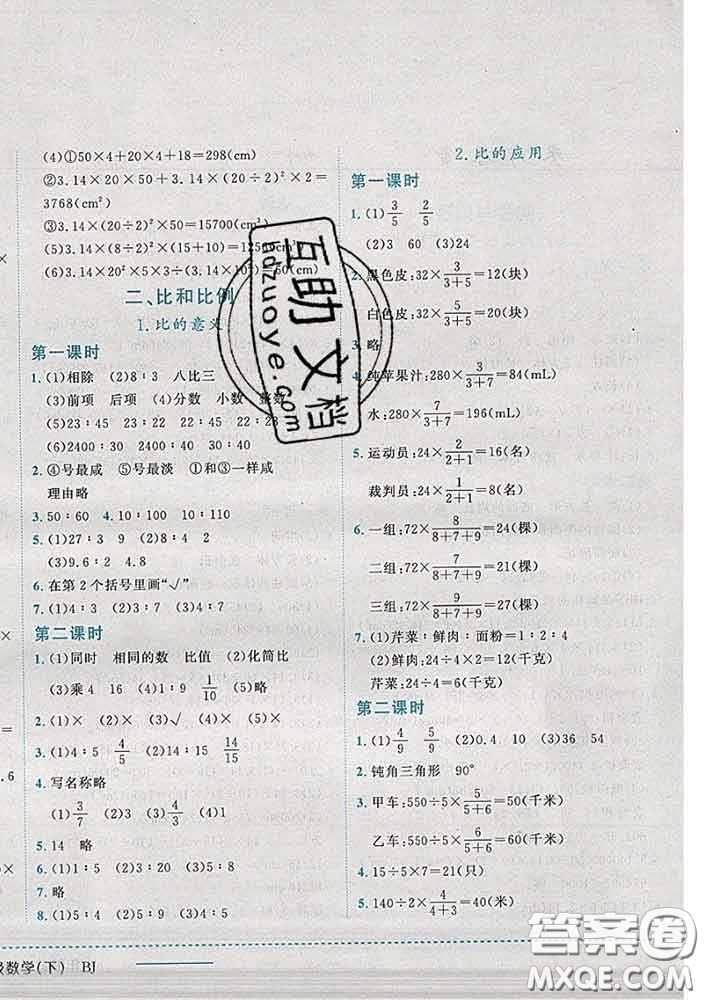 (4)①50×4+20×4+18=298(cm)
②3.14×20×50+3.14×(20÷2)²×2=
3768(cm²)
③3.14×(20÷2)²×50=15700(cm³)
(5)3.14×(8÷2)²×(15+10)=
(6)3.14×20²×5÷
二、比和比例
1.比的意义
第一课时
1.(1)相除 (2)8∶3 八比三
(3)前项 后项 (4)分数 小数 整数
(5)23∶45 23∶22 22∶45 22∶23
(6)2400∶30 2400∶40 30∶40
2.④号最咸 ⑤号最淡 ①和③一样咸
理由略
3.50∶60 4.10∶100 10∶110
5.(1)27∶3 9 (2)8∶4 2
(3)9.6∶2 4.8
6.在第2个括号里画“√”
7.(1)3∶10 (2)4∶3 (3)7∶3
第二课时
1.(1)同时 相同的数 比值 (2)化简比
(3)乘4 16 (4)1∶9 1/10 (5)略
2.(1)× (2)× (3)√ (4)×
3.(1)4∶5 4/5 (2)14∶15 14/15
4.写名称略
(1)3/7 (2)3 (3)4/3 (4)1
5.14 略
6.(1)1∶5 (2)3∶20 (3)5∶8
7.略
8.(1)5∶4 (2)9∶5 (3)4∶5
2.比的应用
第一课时
1.(1)3/5 2/5
(2)3 60 (3)24
2.黑色皮:32×3/(3+5)=12(块)
白色皮:32×5/(3+5)=20(块)
3.略
4.纯苹果汁:280×3/(3+7)=84(mL)
水:280×7/(3+7)=196(mL)
5.运动员:24×2/(2+1)=16(名)
裁判员:24×1/(2+1)=8(名)
6.一组:72×8/(8+7+9)=24(棵)
二组:72×7/(8+7+9)=21(棵)
三组:72×9/(8+7+9)=27(棵)
7.(1)芹菜∶鲜肉∶面粉=1∶2∶4
(2)鲜肉:24÷2=12(千克)
芹菜:24÷4=6(千克)
第二课时
1.(1)4/9 5/9 (2)0.4 10 (3)36 54
2.钝角三角形 90°
3.甲车:550÷5×5/(5+6)=50(千米)
乙车:550÷5×6/(5+6)=60(千米)
4.15÷5×7=21(只)
5.140÷2×4/(4+3)=40(米)
级数学(下) BJ
互助文档
hdzuoye.com
答案圈
MXQE.COM